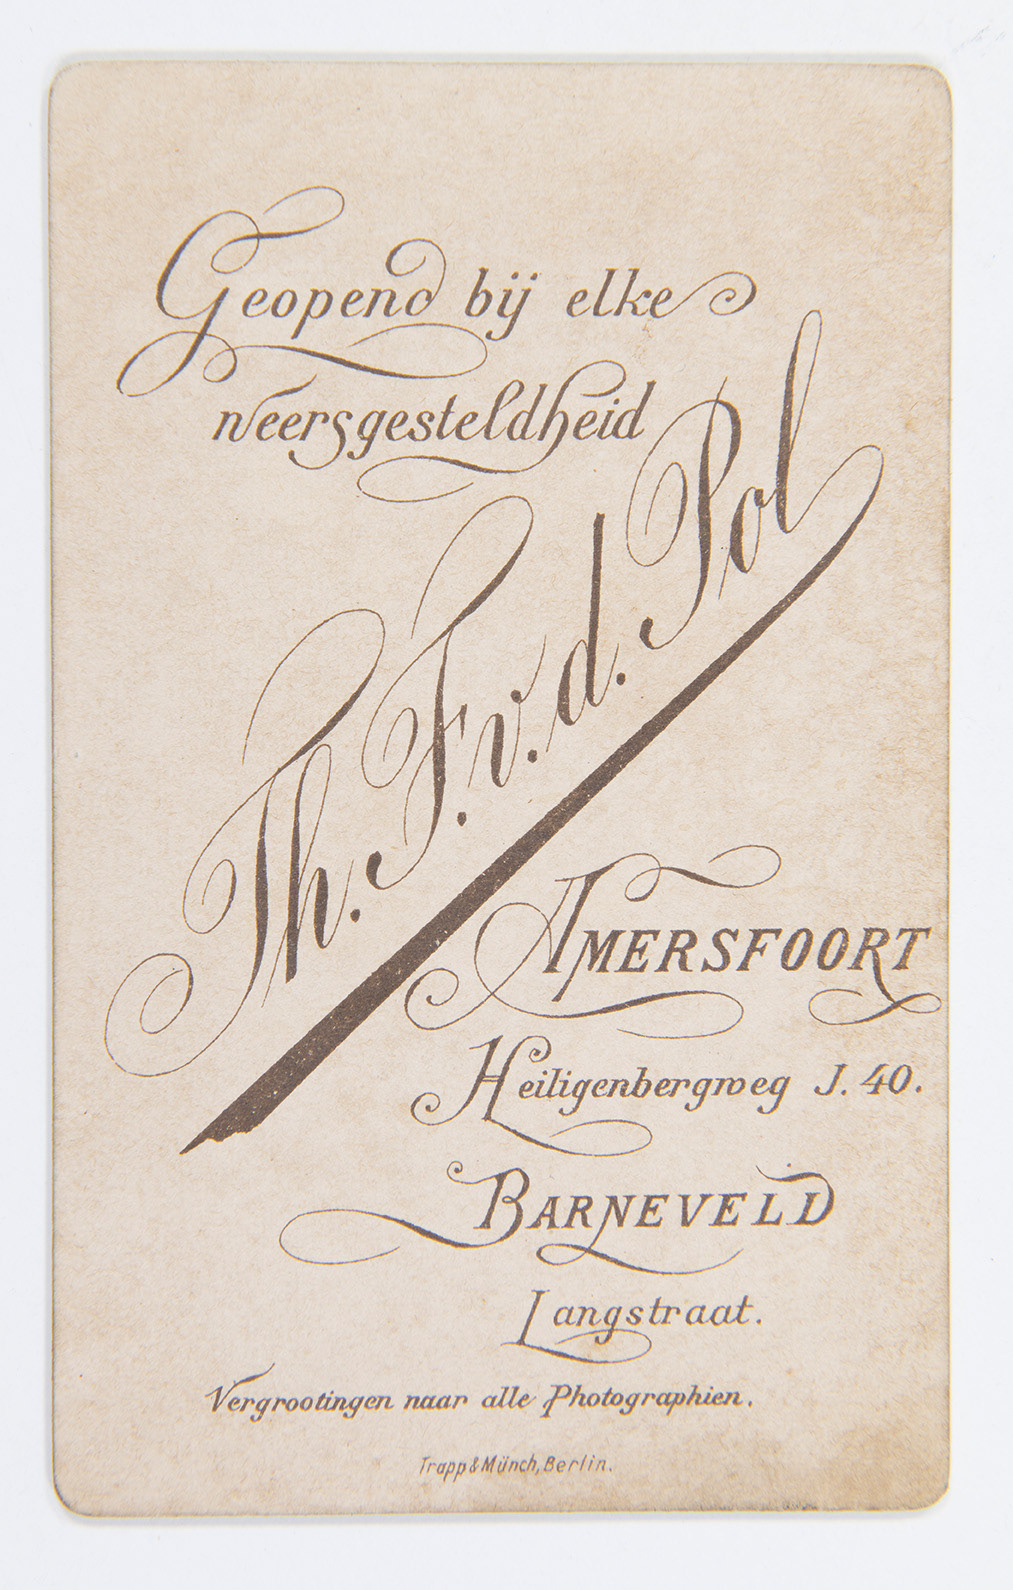 Geopend bij elke
weersgesteldheid
Th. F. v. d. Pol
AMERSFOORT
Heiligenbergweg J. 40.
BARNEVELD
Langstraat.
Vergrootingen naar alle Photographien.
Trapp & Münch, Berlin.